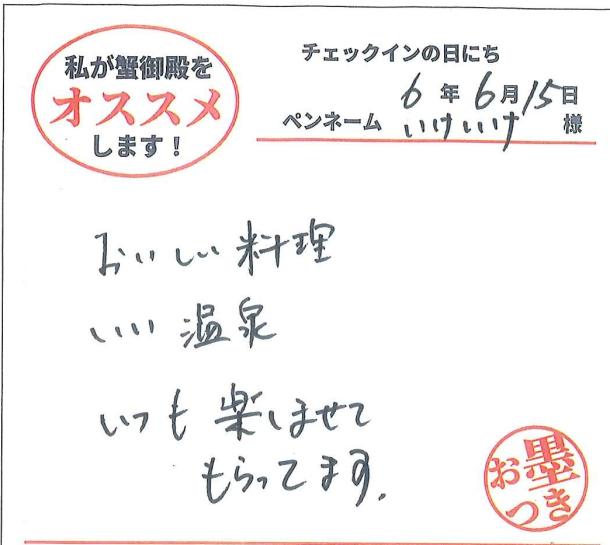 私が蟹御殿を
オススメ
します！
チェックインの日にち
6年6月15日
ペンネーム いけいけ 様
おいしい料理
いい温泉
いつも楽しませて
もらってます。
お墨
つき